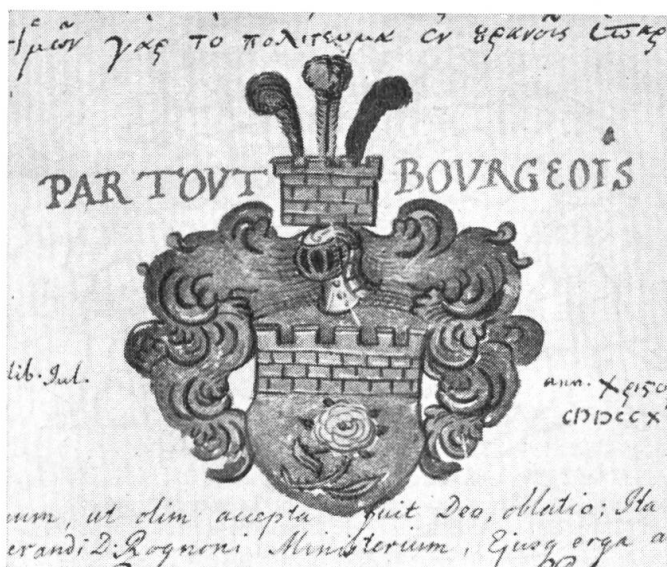 γὰρ τὸ πολίτευμα ἐν ȣρανοῖς
PAR TOVT BOVRGEOIS
Iul.
ann.
CIƆDCCX
num, ut olim accepta fuit Deo, oblatio; Ita
erandi D: Rognoni Ministerium, Ejusq erga a